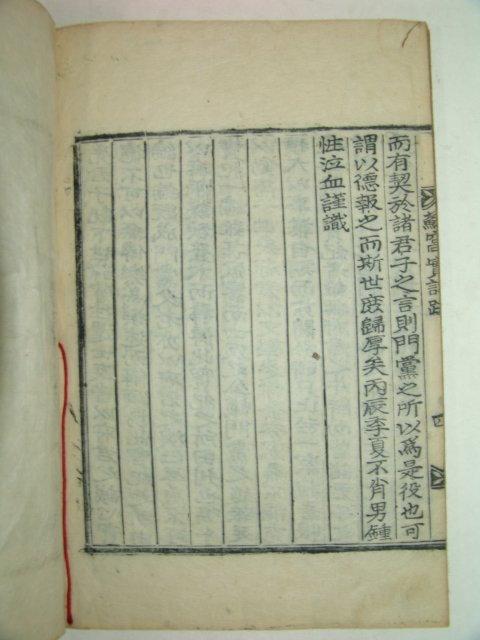 而有契於諸君子之言則門黨之所以爲是役也可
謂以德報之而斯世庶歸厚矣丙辰季夏不肖男鍾
性泣血謹識
四